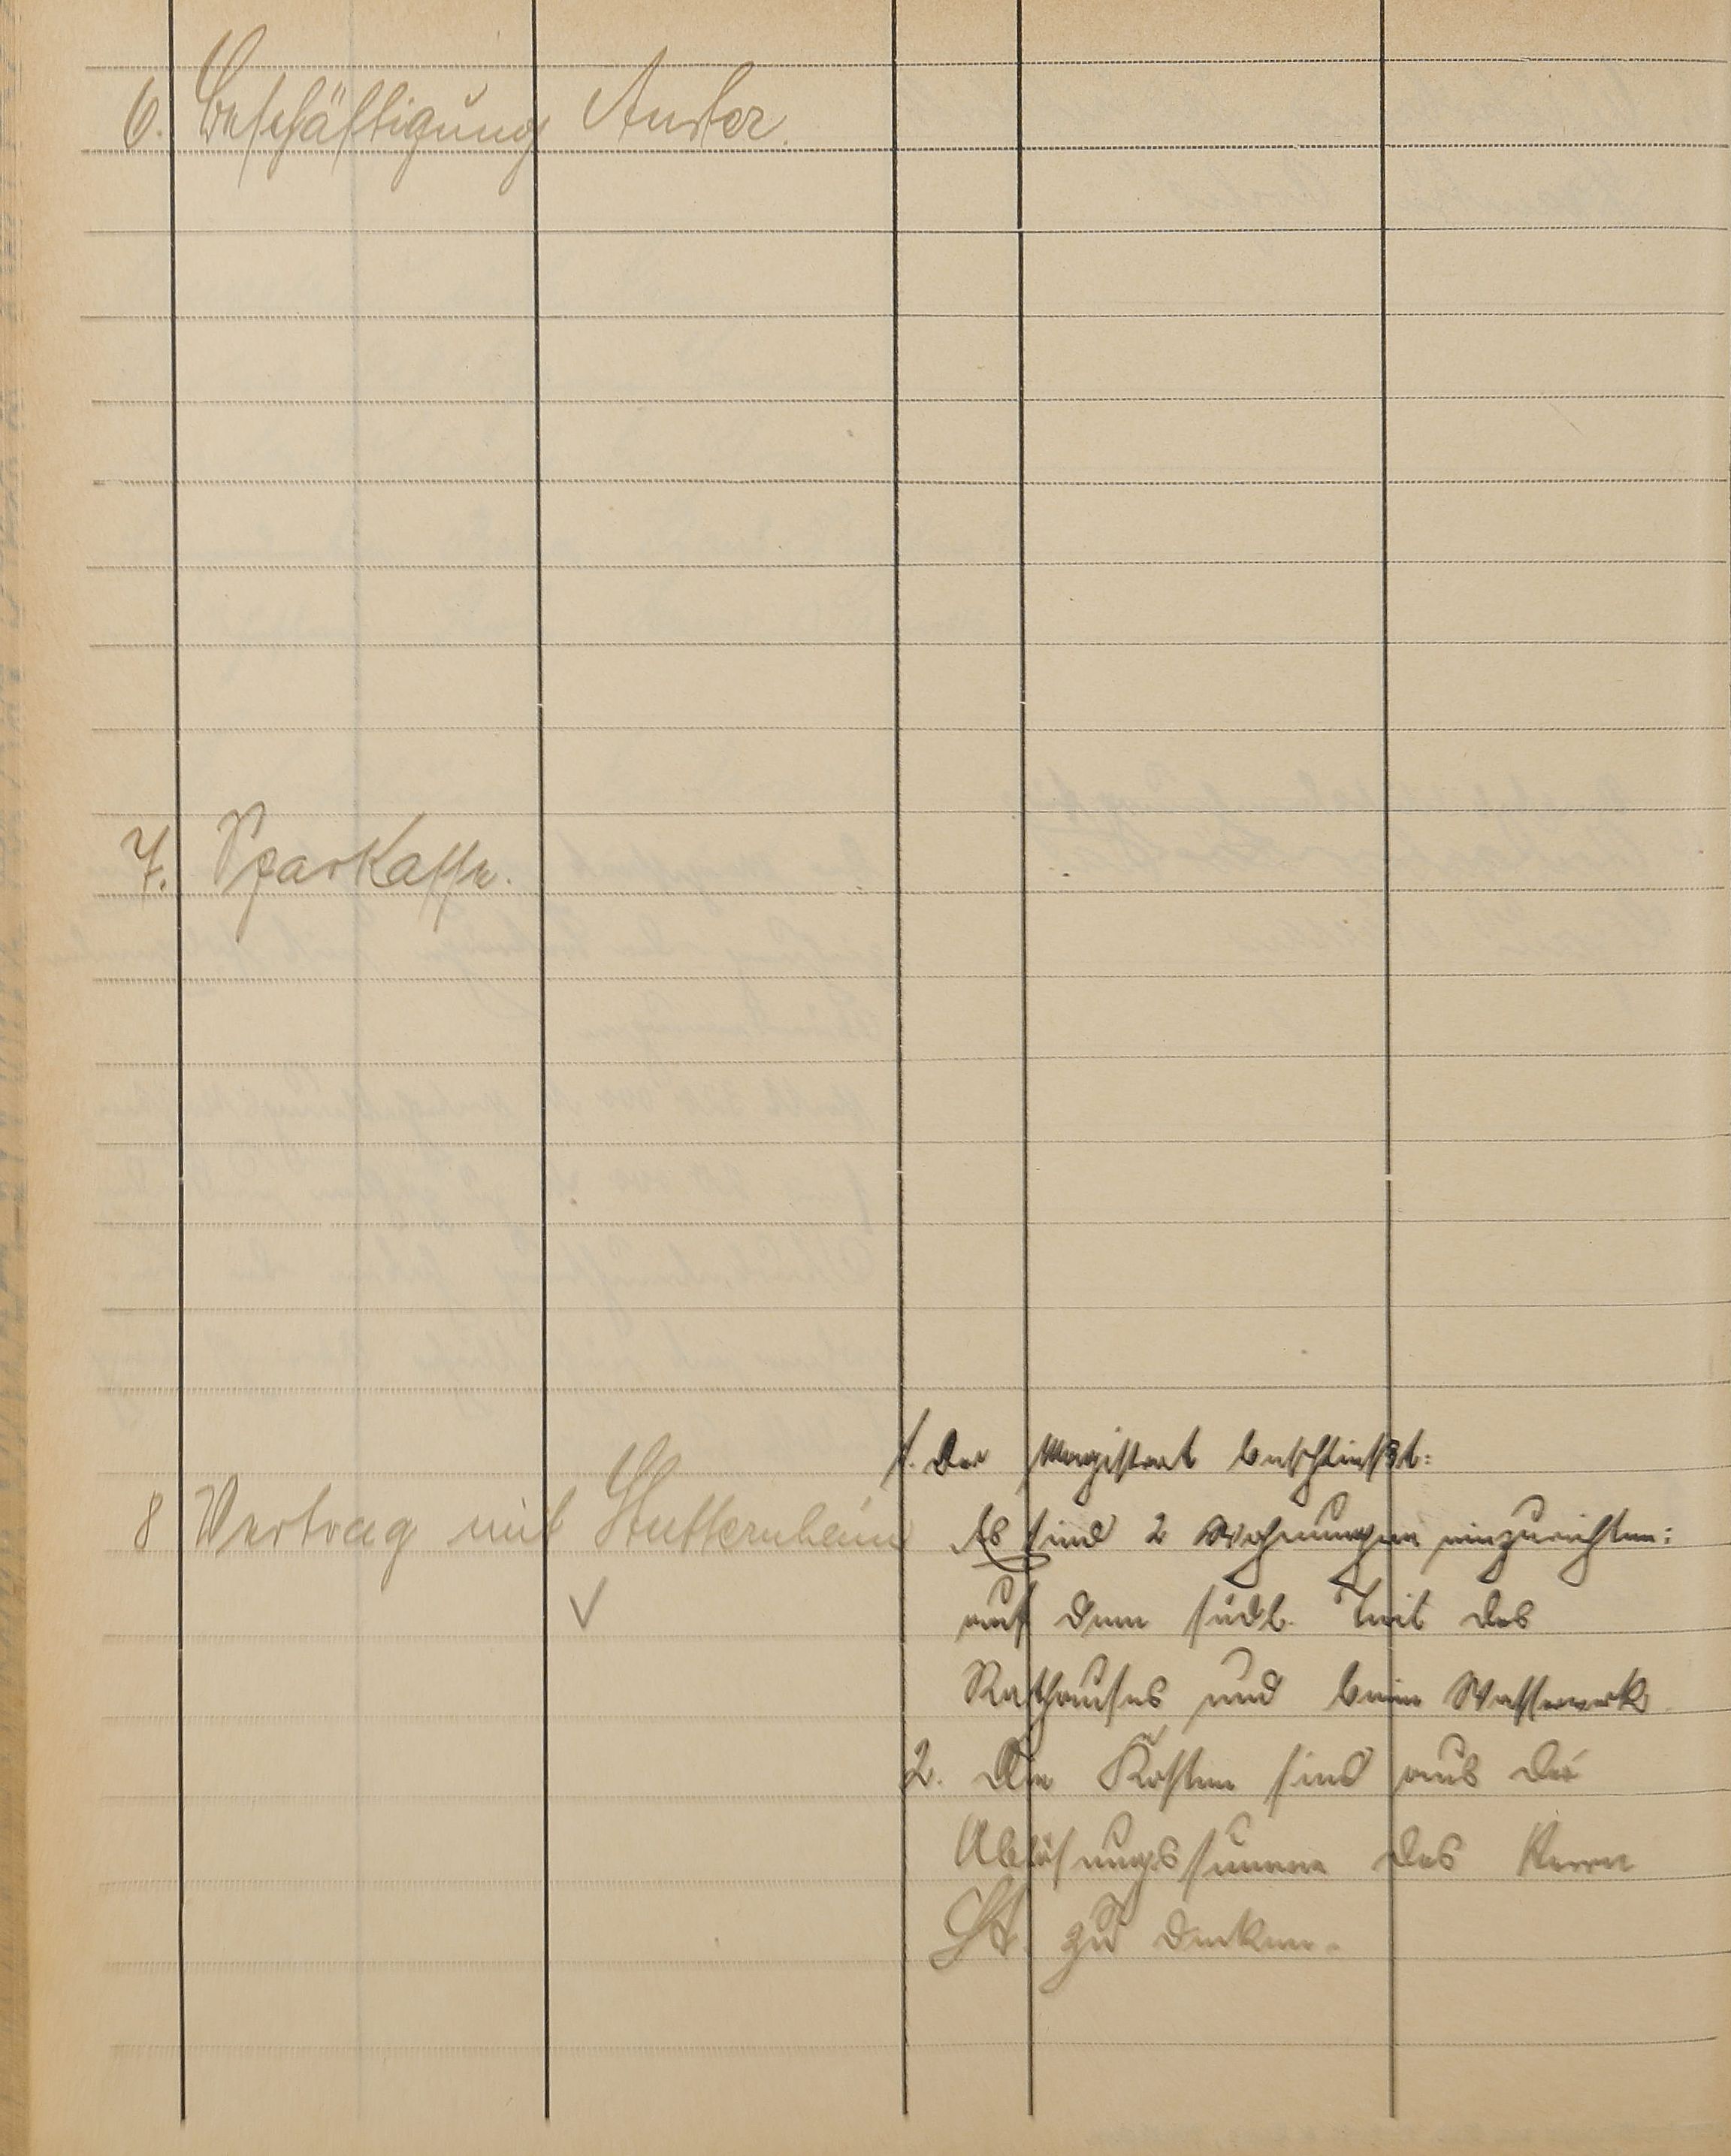 6. Beschäftigung Anker.
7. Sparkasse.
8 Vertrag mit Stutternheim
1. Der Magistrat beschließt:
Es sind 2 Wohnungen einzurichten:
auf dem südl. Teil des
Rathauses und beim Wasserwerk
2. Die Kosten sind aus der
Ablösungssumme des Herrn
St. zu decken.